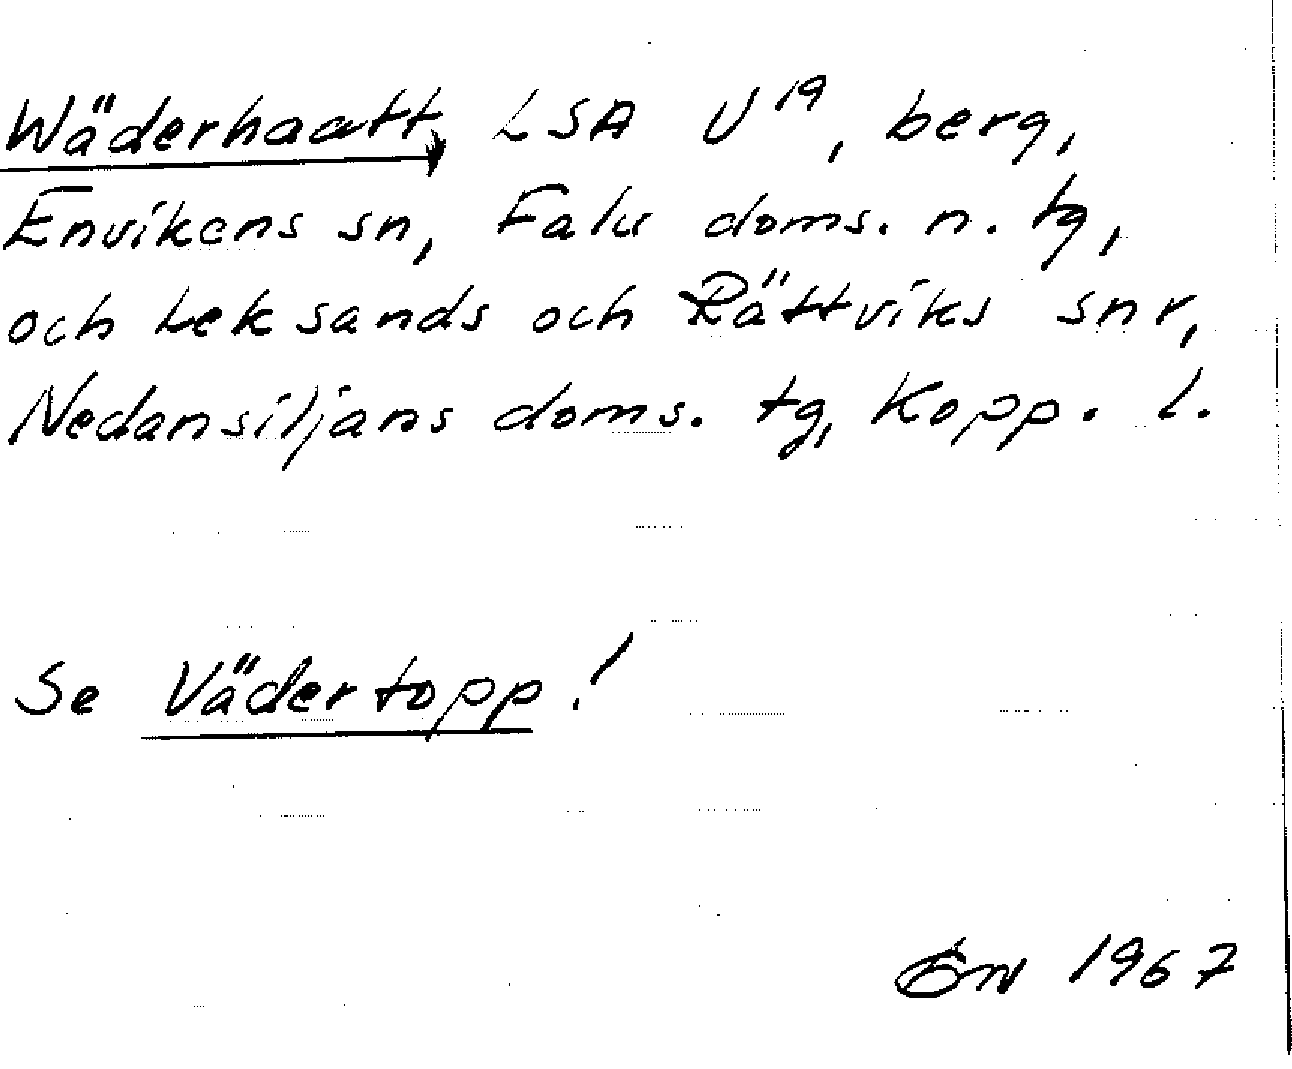 Wäderhaatt, LSA U¹⁹, berg,
Envikens sn, Falu doms. n. tg,
och Leksands och Rättviks snr,
Nedansiljans doms. tg, Kopp. l.
Se Vädertopp!
1967